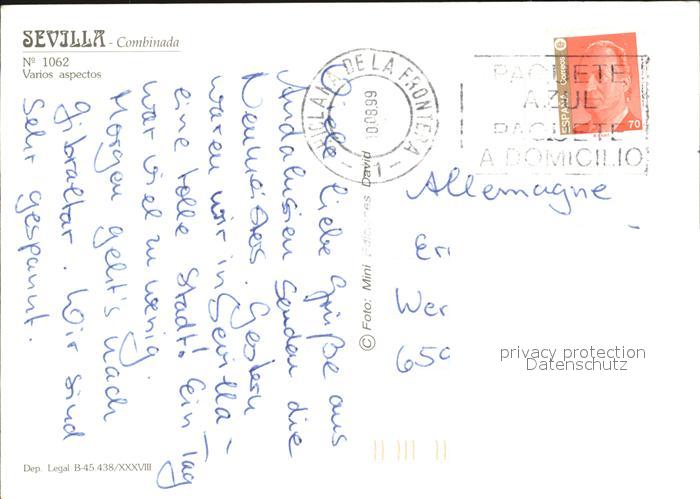 SEVILLA - Combinada
Nº 1062
Varios aspectos
Viele liebe Grüße aus
Andalusien senden die
Neumeisters. Gestern
waren wir in Sevilla -
eine tolle Stadt! Ein Tag
war viel zu wenig.
Morgen geht's nach
Gibraltar. Wir sind
sehr gespannt.
Dep. Legal B-45.438/XXXVIII
© Foto: Mini Ediciones David
CHICLANA DE LA FRONTERA
10.08.99
- 1 -
PAQUETE
AZUL
PAQUETE
A DOMICILIO
ESPAÑA Correos
70
Allemagne
Er
Wer
650
privacy protection
Datenschutz